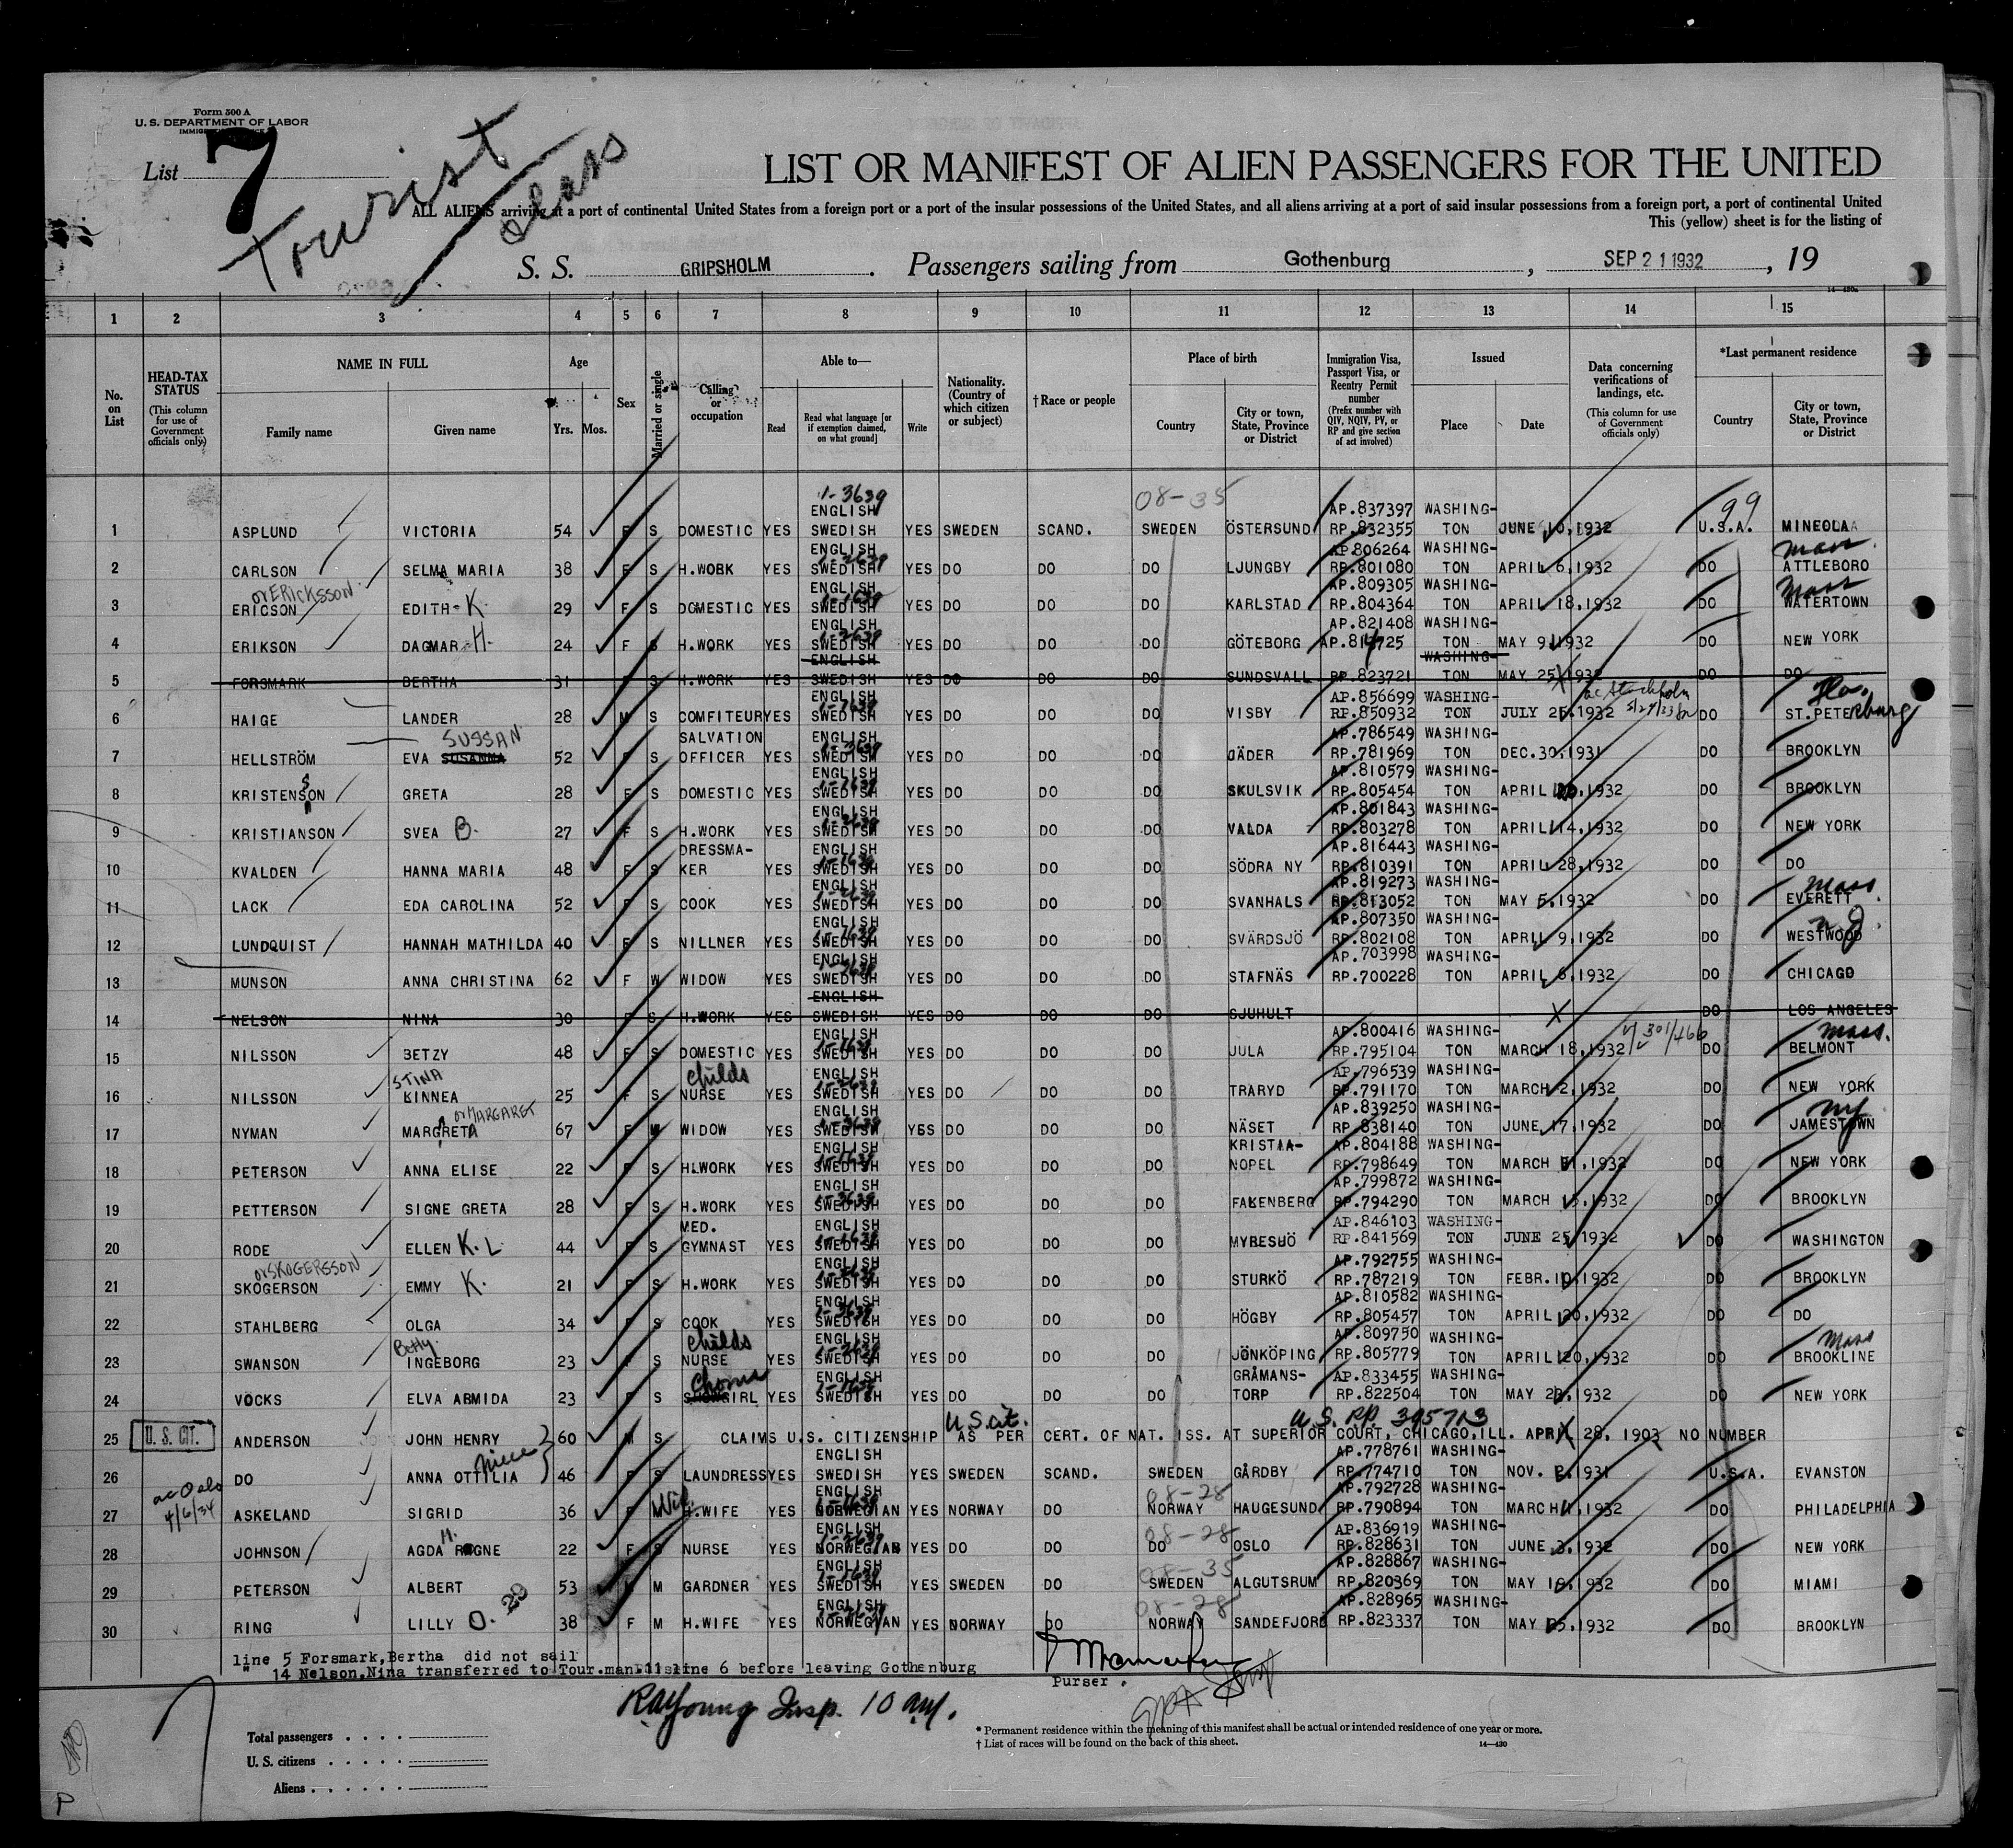 Form 500 A
U. S. DEPARTMENT OF LABOR
List 7
Tourist class
LIST OR MANIFEST OF ALIEN PASSENGERS FOR THE UNITED
ALL ALIENS arriving at a port of continental United States from a foreign port or a port of the insular possessions of the United States, and all aliens arriving at a port of said insular possessions from a foreign port, a port of continental United
This (yellow) sheet is for the listing of
S. S. GRIPSHOLM. Passengers sailing from Gothenburg, SEP 21 1932, 19
14—430a
1 2 3 4 5 6 7 8 9 10 11 12 13 14 15
No. on List
HEAD-TAX STATUS (This column for use of Government officials only)
NAME IN FULL Family name Given name
Age Yrs. Mos.
Sex
Married or single
Calling or occupation
Able to— Read Read what language [or if exemption claimed, on what ground] Write
Nationality. (Country of which citizen or subject)
†Race or people
Place of birth Country City or town, State, Province or District
Immigration Visa, Passport Visa, or Reentry Permit number (Prefix number with QIV, NQIV, PV, or RP and give section of act involved)
Issued Place Date
Data concerning verifications of landings, etc. (This column for use of Government officials only)
*Last permanent residence Country City or town, State, Province or District
1-3639 08-35 99
1 ASPLUND VICTORIA 54 F S DOMESTIC YES ENGLISH SWEDISH YES SWEDEN SCAND. SWEDEN ÖSTERSUND AP.837397 RP.832355 WASHINGTON JUNE 10,1932 U.S.A. MINEOLA
2 CARLSON SELMA MARIA 38 F S H.WORK YES ENGLISH SWEDISH YES DO DO DO LJUNGBY AP.806264 RP.801080 WASHINGTON APRIL 6,1932 DO ATTLEBORO Mass.
3 ERICSON or ERICKSSON EDITH-K. 29 F S DOMESTIC YES ENGLISH SWEDISH YES DO DO DO KARLSTAD AP.809305 RP.804364 WASHINGTON APRIL 18,1932 DO WATERTOWN Mass
4 ERIKSON DAGMAR H. 24 F S H.WORK YES ENGLISH SWEDISH YES DO DO DO GÖTEBORG AP.821408 AP.814725 WASHINGTON MAY 9,1932 DO NEW YORK
5 FORSMARK BERTHA 31 F S H.WORK YES ENGLISH SWEDISH YES DO DO DO SUNDSVALL RP.823721 WASHING- MAY 25,1932 DO DO
6 HAIGE LANDER 28 M S COMFITEUR YES ENGLISH SWEDISH YES DO DO DO VISBY AP.856699 RP.850932 WASHINGTON JULY 25,1932 ac Stockholm 5/24/33 DO ST.PETERsburg Fla.
7 HELLSTRÖM EVA SUSANNA SUSSAN 52 F S SALVATION OFFICER YES ENGLISH SWEDISH YES DO DO DO JÄDER AP.786549 RP.781969 WASHINGTON DEC.30,1931 DO BROOKLYN
8 KRISTENSON GRETA 28 F S DOMESTIC YES ENGLISH SWEDISH YES DO DO DO SKULSVIK AP.810579 RP.805454 WASHINGTON APRIL 20,1932 DO BROOKLYN
9 KRISTIANSON SVEA B. 27 F S H.WORK YES ENGLISH SWEDISH YES DO DO DO VALDA AP.801843 RP.803278 WASHINGTON APRIL 14,1932 DO NEW YORK
10 KVALDEN HANNA MARIA 48 F S DRESSMAKER YES ENGLISH SWEDISH YES DO DO DO SÖDRA NY AP.816443 RP.810391 WASHINGTON APRIL 28,1932 DO DO
11 LACK EDA CAROLINA 52 F S COOK YES ENGLISH SWEDISH YES DO DO DO SVANHALS AP.819273 RP.813052 WASHINGTON MAY 5,1932 DO EVERETT Mass.
12 LUNDQUIST HANNAH MATHILDA 40 F S NILLNER YES ENGLISH SWEDISH YES DO DO DO SVÄRDSJÖ AP.807350 RP.802108 WASHINGTON APRIL 9,1932 DO WESTWOOD N.J.
13 MUNSON ANNA CHRISTINA 62 F W WIDOW YES ENGLISH SWEDISH YES DO DO DO STAFNÄS AP.703998 RP.700228 WASHINGTON APRIL 6,1932 DO CHICAGO
14 NELSON NINA 30 F S H.WORK YES ENGLISH SWEDISH YES DO DO DO SJUHULT DO LOS ANGELES
15 NILSSON BETZY 48 F S DOMESTIC YES ENGLISH SWEDISH YES DO DO DO JULA AP.800416 RP.795104 WASHINGTON MARCH 18,1932 V/301/466 DO BELMONT Mass.
16 NILSSON STINA LINNEA 25 F S Childs NURSE YES ENGLISH SWEDISH YES DO DO DO TRARYD AP.796539 RP.791170 WASHINGTON MARCH 2,1932 DO NEW YORK
17 NYMAN MARGRETA or MARGARET 67 F W WIDOW YES ENGLISH SWEDISH YES DO DO DO NÄSET AP.839250 RP.838140 WASHINGTON JUNE 17,1932 DO JAMESTOWN NY
18 PETERSON ANNA ELISE 22 F S H.WORK YES ENGLISH SWEDISH YES DO DO DO KRISTIA-NOPEL AP.804188 RP.798649 WASHINGTON MARCH 31,1932 DO NEW YORK
19 PETTERSON SIGNE GRETA 28 F S H.WORK YES ENGLISH SWEDISH YES DO DO DO FALKENBERG AP.799872 RP.794290 WASHINGTON MARCH 15,1932 DO BROOKLYN
20 RODE ELLEN K. L 44 F S MED. GYMNAST YES ENGLISH SWEDISH YES DO DO DO MYRESJÖ AP.846103 RP.841569 WASHINGTON JUNE 25,1932 DO WASHINGTON
21 SKOGERSON or SKOGERSSON EMMY K. 21 F S H.WORK YES ENGLISH SWEDISH YES DO DO DO STURKÖ AP.792755 RP.787219 WASHINGTON FEBR.10,1932 DO BROOKLYN
22 STAHLBERG OLGA 34 F S COOK YES ENGLISH SWEDISH YES DO DO DO HÖGBY AP.810582 RP.805457 WASHINGTON APRIL 20,1932 DO DO
23 SWANSON Betty INGEBORG 23 F S Childs NURSE YES ENGLISH SWEDISH YES DO DO DO JÖNKÖPING AP.809750 RP.805779 WASHINGTON APRIL 20,1932 DO BROOKLINE Mass
24 VÖCKS ELVA ARMIDA 23 F S SHOWGIRL Chorus YES ENGLISH SWEDISH YES DO DO DO GRÅMANS-TORP AP.833455 RP.822504 WASHINGTON MAY 23,1932 DO NEW YORK
25 U. S. CIT. ANDERSON JOHN HENRY 60 M S U.S. cit. U.S. RP. 395713 CLAIMS U.S. CITIZENSHIP AS PER CERT. OF NAT. ISS. AT SUPERIOR COURT, CHICAGO, ILL. APRIL 28, 1903 NO NUMBER
26 DO ANNA OTTILIA niece 46 F S LAUNDRESS YES ENGLISH SWEDISH YES SWEDEN SCAND. SWEDEN GÅRDBY AP.778761 RP.774710 WASHINGTON NOV. 2,1931 U.S.A. EVANSTON
27 ac Oslo 4/6/34 ASKELAND SIGRID 36 F M Wid. H.WIFE YES ENGLISH NORWEGIAN YES NORWAY DO 08-28 NORWAY HAUGESUND AP.792728 RP.790894 WASHINGTON MARCH 4,1932 DO PHILADELPHIA
28 JOHNSON AGDA H. RAGNE 22 F S NURSE YES ENGLISH NORWEGIAN YES DO DO 08-28 DO OSLO AP.836919 RP.828631 WASHINGTON JUNE 3,1932 DO NEW YORK
29 PETERSON ALBERT 53 M M GARDNER YES ENGLISH SWEDISH YES SWEDEN DO 08-35 SWEDEN ALGUTSRUM AP.828867 RP.820369 WASHINGTON MAY 19,1932 DO MIAMI
30 RING LILLY O. 29 38 F M H.WIFE YES ENGLISH NORWEGIAN YES NORWAY DO 08-28 NORWAY SANDEFJORD AP.828965 RP.823337 WASHINGTON MAY 25,1932 DO BROOKLYN
line 5 Forsmark,Bertha did not sail
" 14 Nelson,Nina transferred to Tour.man.11 line 6 before leaving Gothenburg
Purser.
RAYoung Insp. 10 am.
Total passengers
U. S. citizens
Aliens
* Permanent residence within the meaning of this manifest shall be actual or intended residence of one year or more.
† List of races will be found on the back of this sheet.
14—430
P